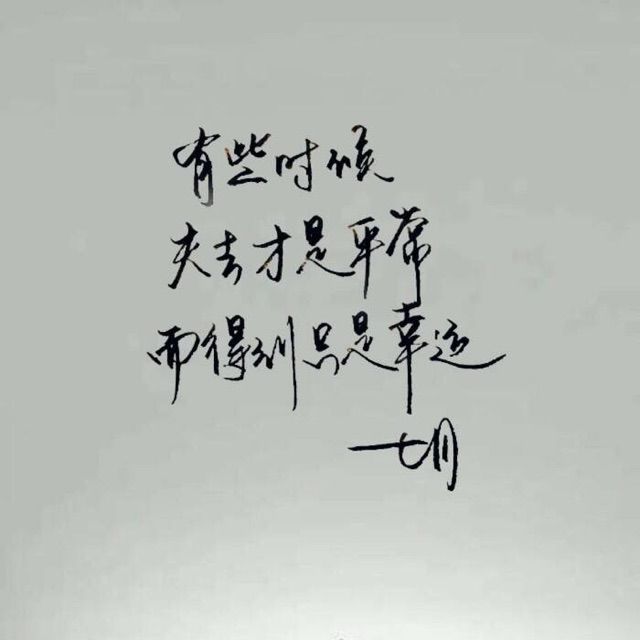 有些时候
失去才是平常
而得到只是幸运
七月